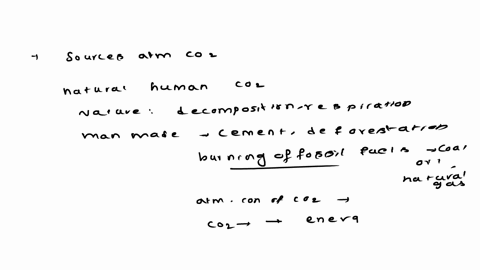 → Sources atm CO2
natural human CO2
Nature: decomposition, respiration
man made → cement, deforestation
burning of fossil fuels → coal
oil,
natural
gas
atm. con of CO2 →
CO2 → → energ